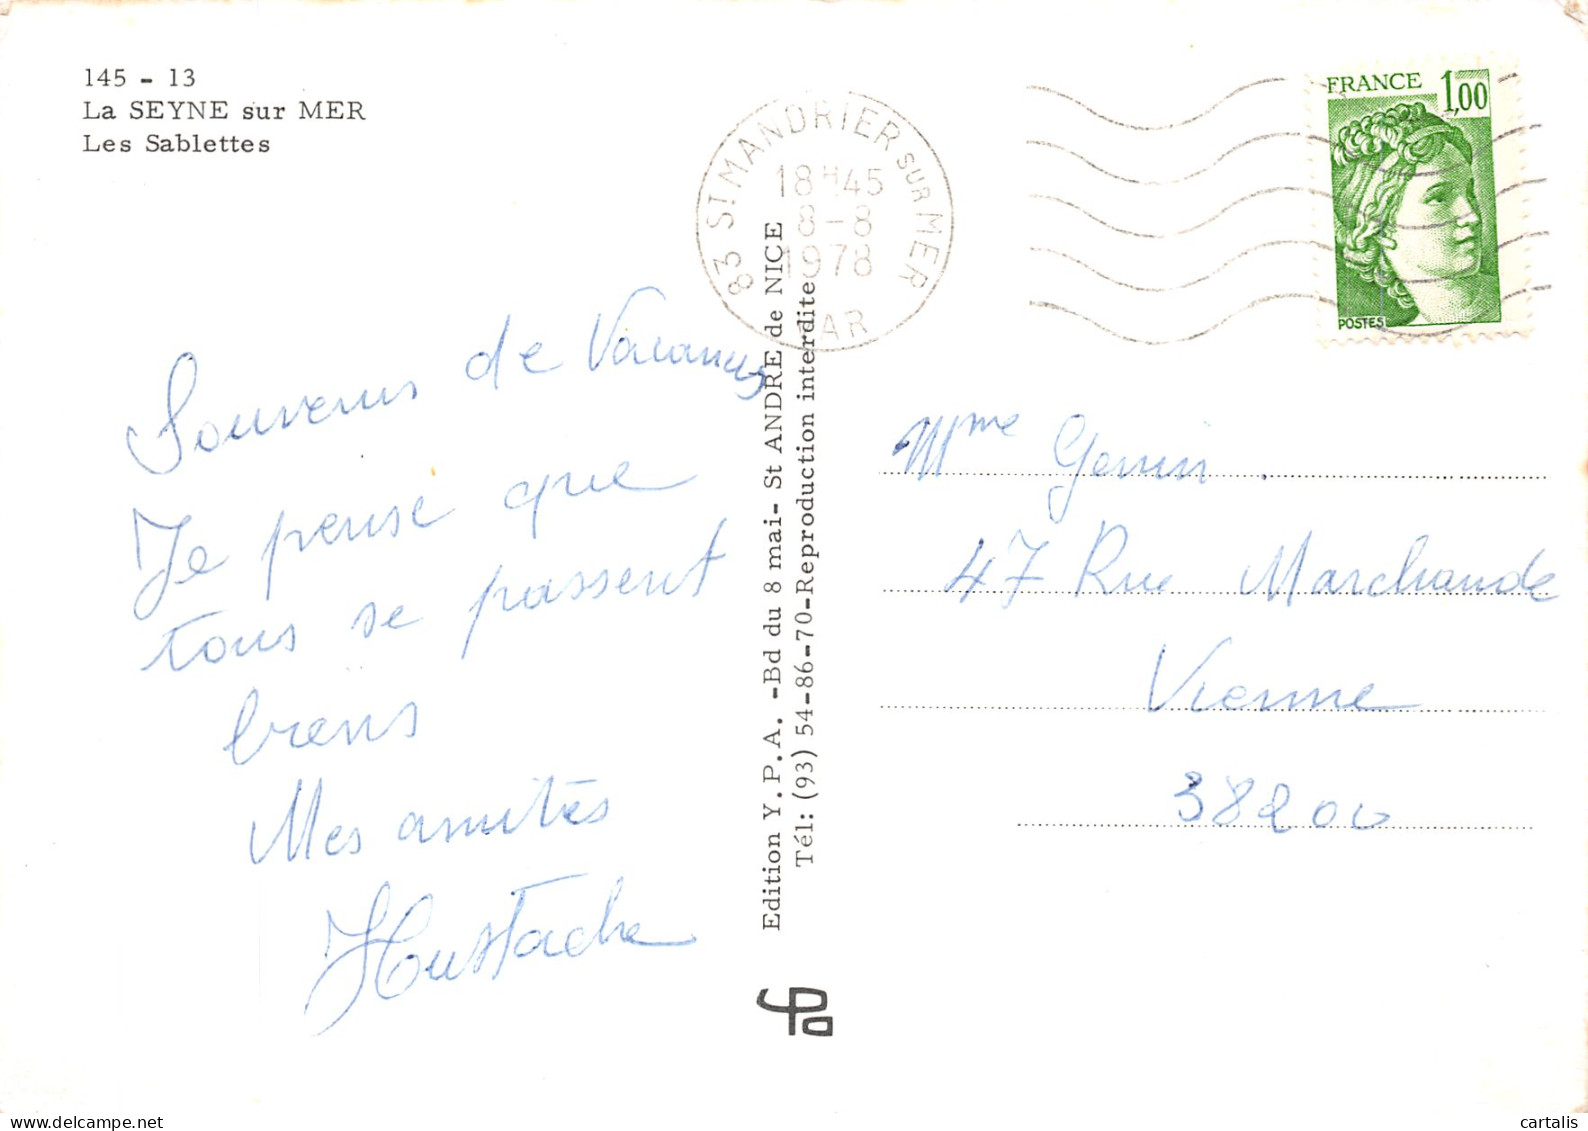 145 - 13
La SEYNE sur MER
Les Sablettes
83 ST MANDRIER SUR MER
18H45
8-8
1978
VAR
FRANCE 1,00
POSTES
Souvenirs de Vacances
Je pense que
tous se passent
biens
Mes amitiés
Edition Y.P.A. -Bd du 8 mai- St ANDRE de NICE
Tél: (93) 54-86-70-Reproduction interdite
Mme Genin
47 Rue Marchande
Vienne
38200
delcampe.net
cartalis